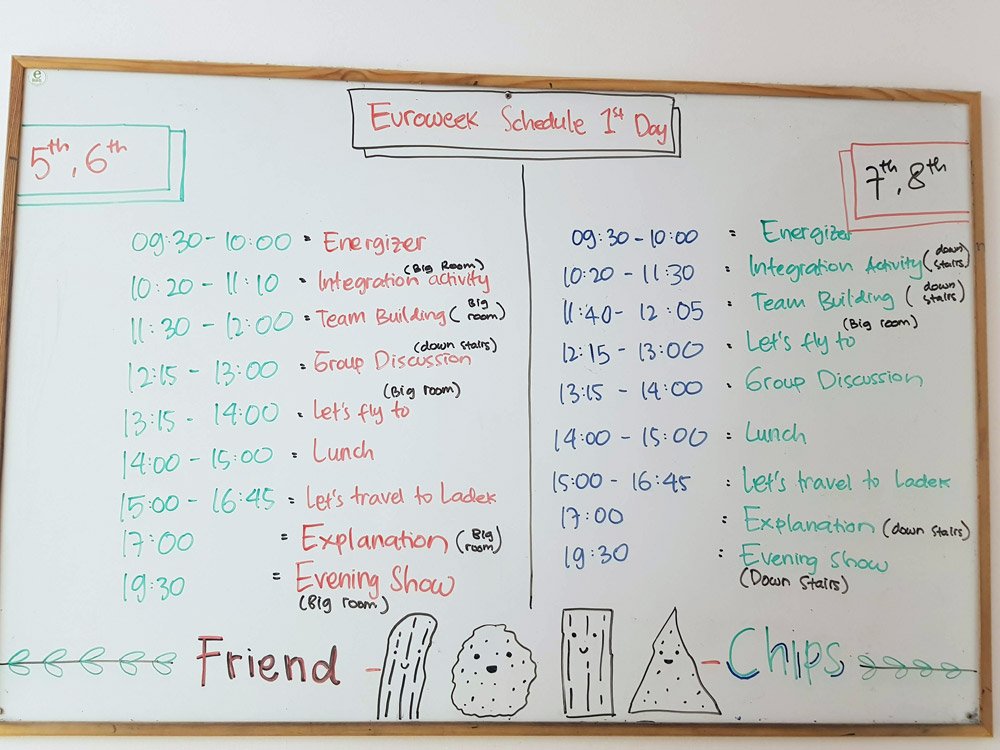 Euroweek Schedule 1st Day
5th, 6th
09:30 - 10:00 = Energizer
(Big Room)
10:20 - 11:10 = Integration activity
11:30 - 12:00 = Team Building (Big room)
(down stairs)
12:15 - 13:00 = Group Discussion
(Big room)
13:15 - 14:00 = Let's fly to
14:00 - 15:00 = Lunch
15:00 - 16:45 = Let's travel to Ladek
17:00 = Explanation (Big room)
19:30 = Evening Show
(Big room)
7th, 8th
09:30 - 10:00 = Energizer
10:20 - 11:30 : Integration Activity (down stairs)
11:40 - 12:05 : Team Building (down stairs)
(Big room)
12:15 - 13:00 : Let's fly to
13:15 - 14:00 : Group Discussion
14:00 - 15:00 : Lunch
15:00 - 16:45 : Let's travel to Ladek
17:00 : Explanation (down stairs)
19:30 : Evening Show
(Down Stairs)
Friend - Chips